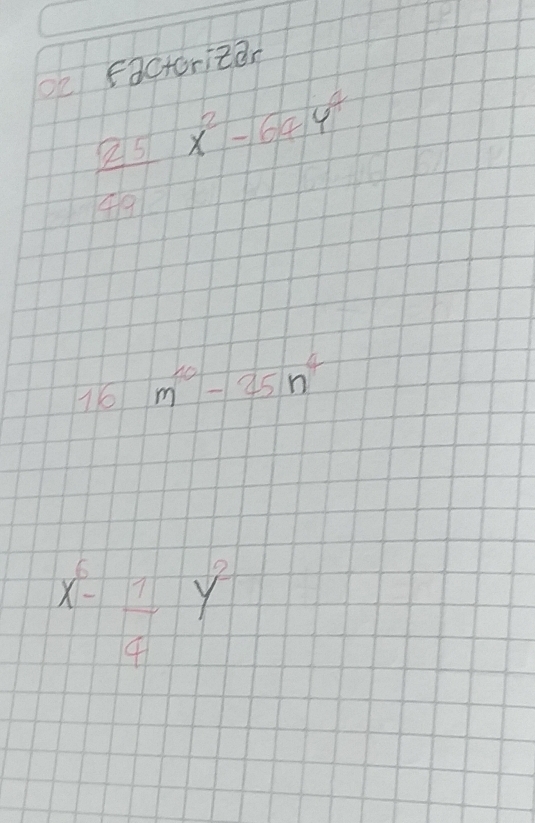 02 Factorizar
25/49 x² - 64 y⁴
16 m¹⁰ - 25 n⁴
x⁶ - 1/4 y²